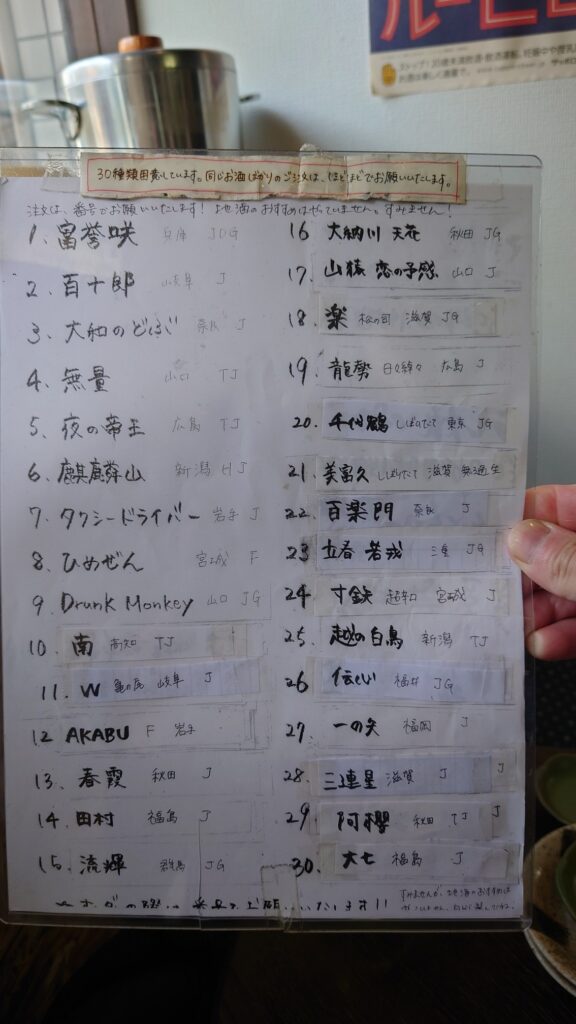 ルービ
ストップ!20歳未満飲酒・飲酒運転。
お酒は楽しく適量で。
30種類用意しています。同じお酒ばかりのご注文は、ほどほどでお願いいたします。
注文は、番号でお願いいたします! 地酒のおすすめはやっていません。すみません!
1. 富誉咲 兵庫 JDG
2. 百十郎 岐阜 J
3. 大和のどぶ 奈良 J
4. 無量 山口 TJ
5. 夜の帝王 広島 TJ
6. 麒麟山 新潟 HJ
7. タクシードライバー 岩手 J
8. ひめぜん 宮城 F
9. Drunk Monkey 山口 JG
10. 南 高知 TJ
11. W 亀の尾 岐阜 J
12 AKABU F 岩手
13. 春霞 秋田 J
14. 田村 福島 J
15. 流輝 群馬 JG
16 大納川 天花 秋田 JG
17. 山猿 恋の予感 山口 J
18. 楽 松の司 滋賀 JG
19. 龍勢 日々綽々 広島 J
20. 千代鶴 しぼりたて 東京 JG
21. 美冨久 しぼりたて 滋賀 無濾過生
22. 百楽門 奈良 J
23 立春 若戎 三重 JG
24. 寸鉄 超辛口 宮城 J
25. 越の白鳥 新潟 TJ
26 伝心 福井 JG
27. 一の矢 福岡 J
28. 三連星 滋賀 J J
29 阿櫻 秋田 TJ J
30. 大七 福島 J
すみませんが、地酒のおすすめは